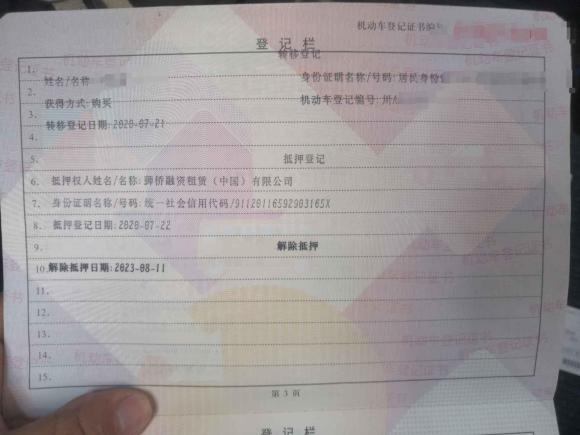 机动车登记证书编号
登记栏
转移登记
1.
姓名/名称
身份证明名称/号码:居民身份
2.
获得方式:购买
机动车登记编号:
3.
转移登记日期:2020-07-21
4.
5. 抵押登记
6. 抵押权人姓名/名称:狮桥融资租赁(中国)有限公司
7. 身份证明名称/号码:统一社会信用代码/91120116592903165X
8. 抵押登记日期:2020-07-22
9. 解除抵押
10. 解除抵押日期:2023-08-11
11.
12.
13.
14.
15.
第 3 页
登记栏